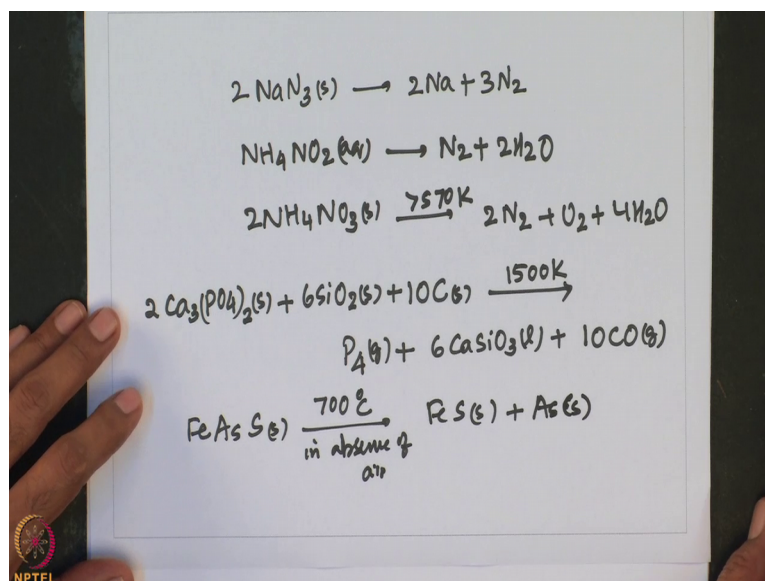 2 NaN3(s) ⟶ 2Na + 3N2
NH4NO2(aq) ⟶ N2 + 2H2O
2NH4NO3(s) >570K⟶ 2N2 + O2 + 4H2O
2 Ca3(PO4)2(s) + 6SiO2(s) + 10C(s) 1500K⟶
P4(g) + 6CaSiO3(l) + 10CO(g)
FeAsS(s) 700°C⟶ FeS(s) + As(s)
in absence of
air
NPTEL